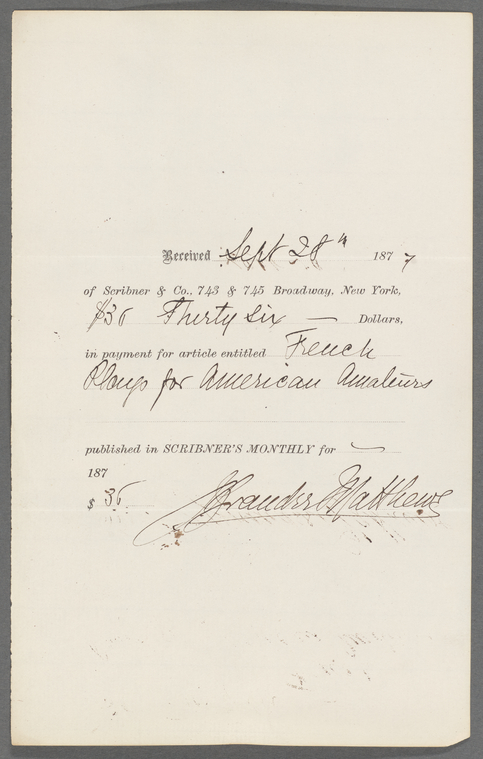 Received Sept 28th 1877
of Scribner & Co., 743 & 745 Broadway, New York,
$36 Thirty Six — Dollars,
in payment for article entitled French
Plays for American Amateurs
published in SCRIBNER'S MONTHLY for —
187
$ 36 J Brander Matthews